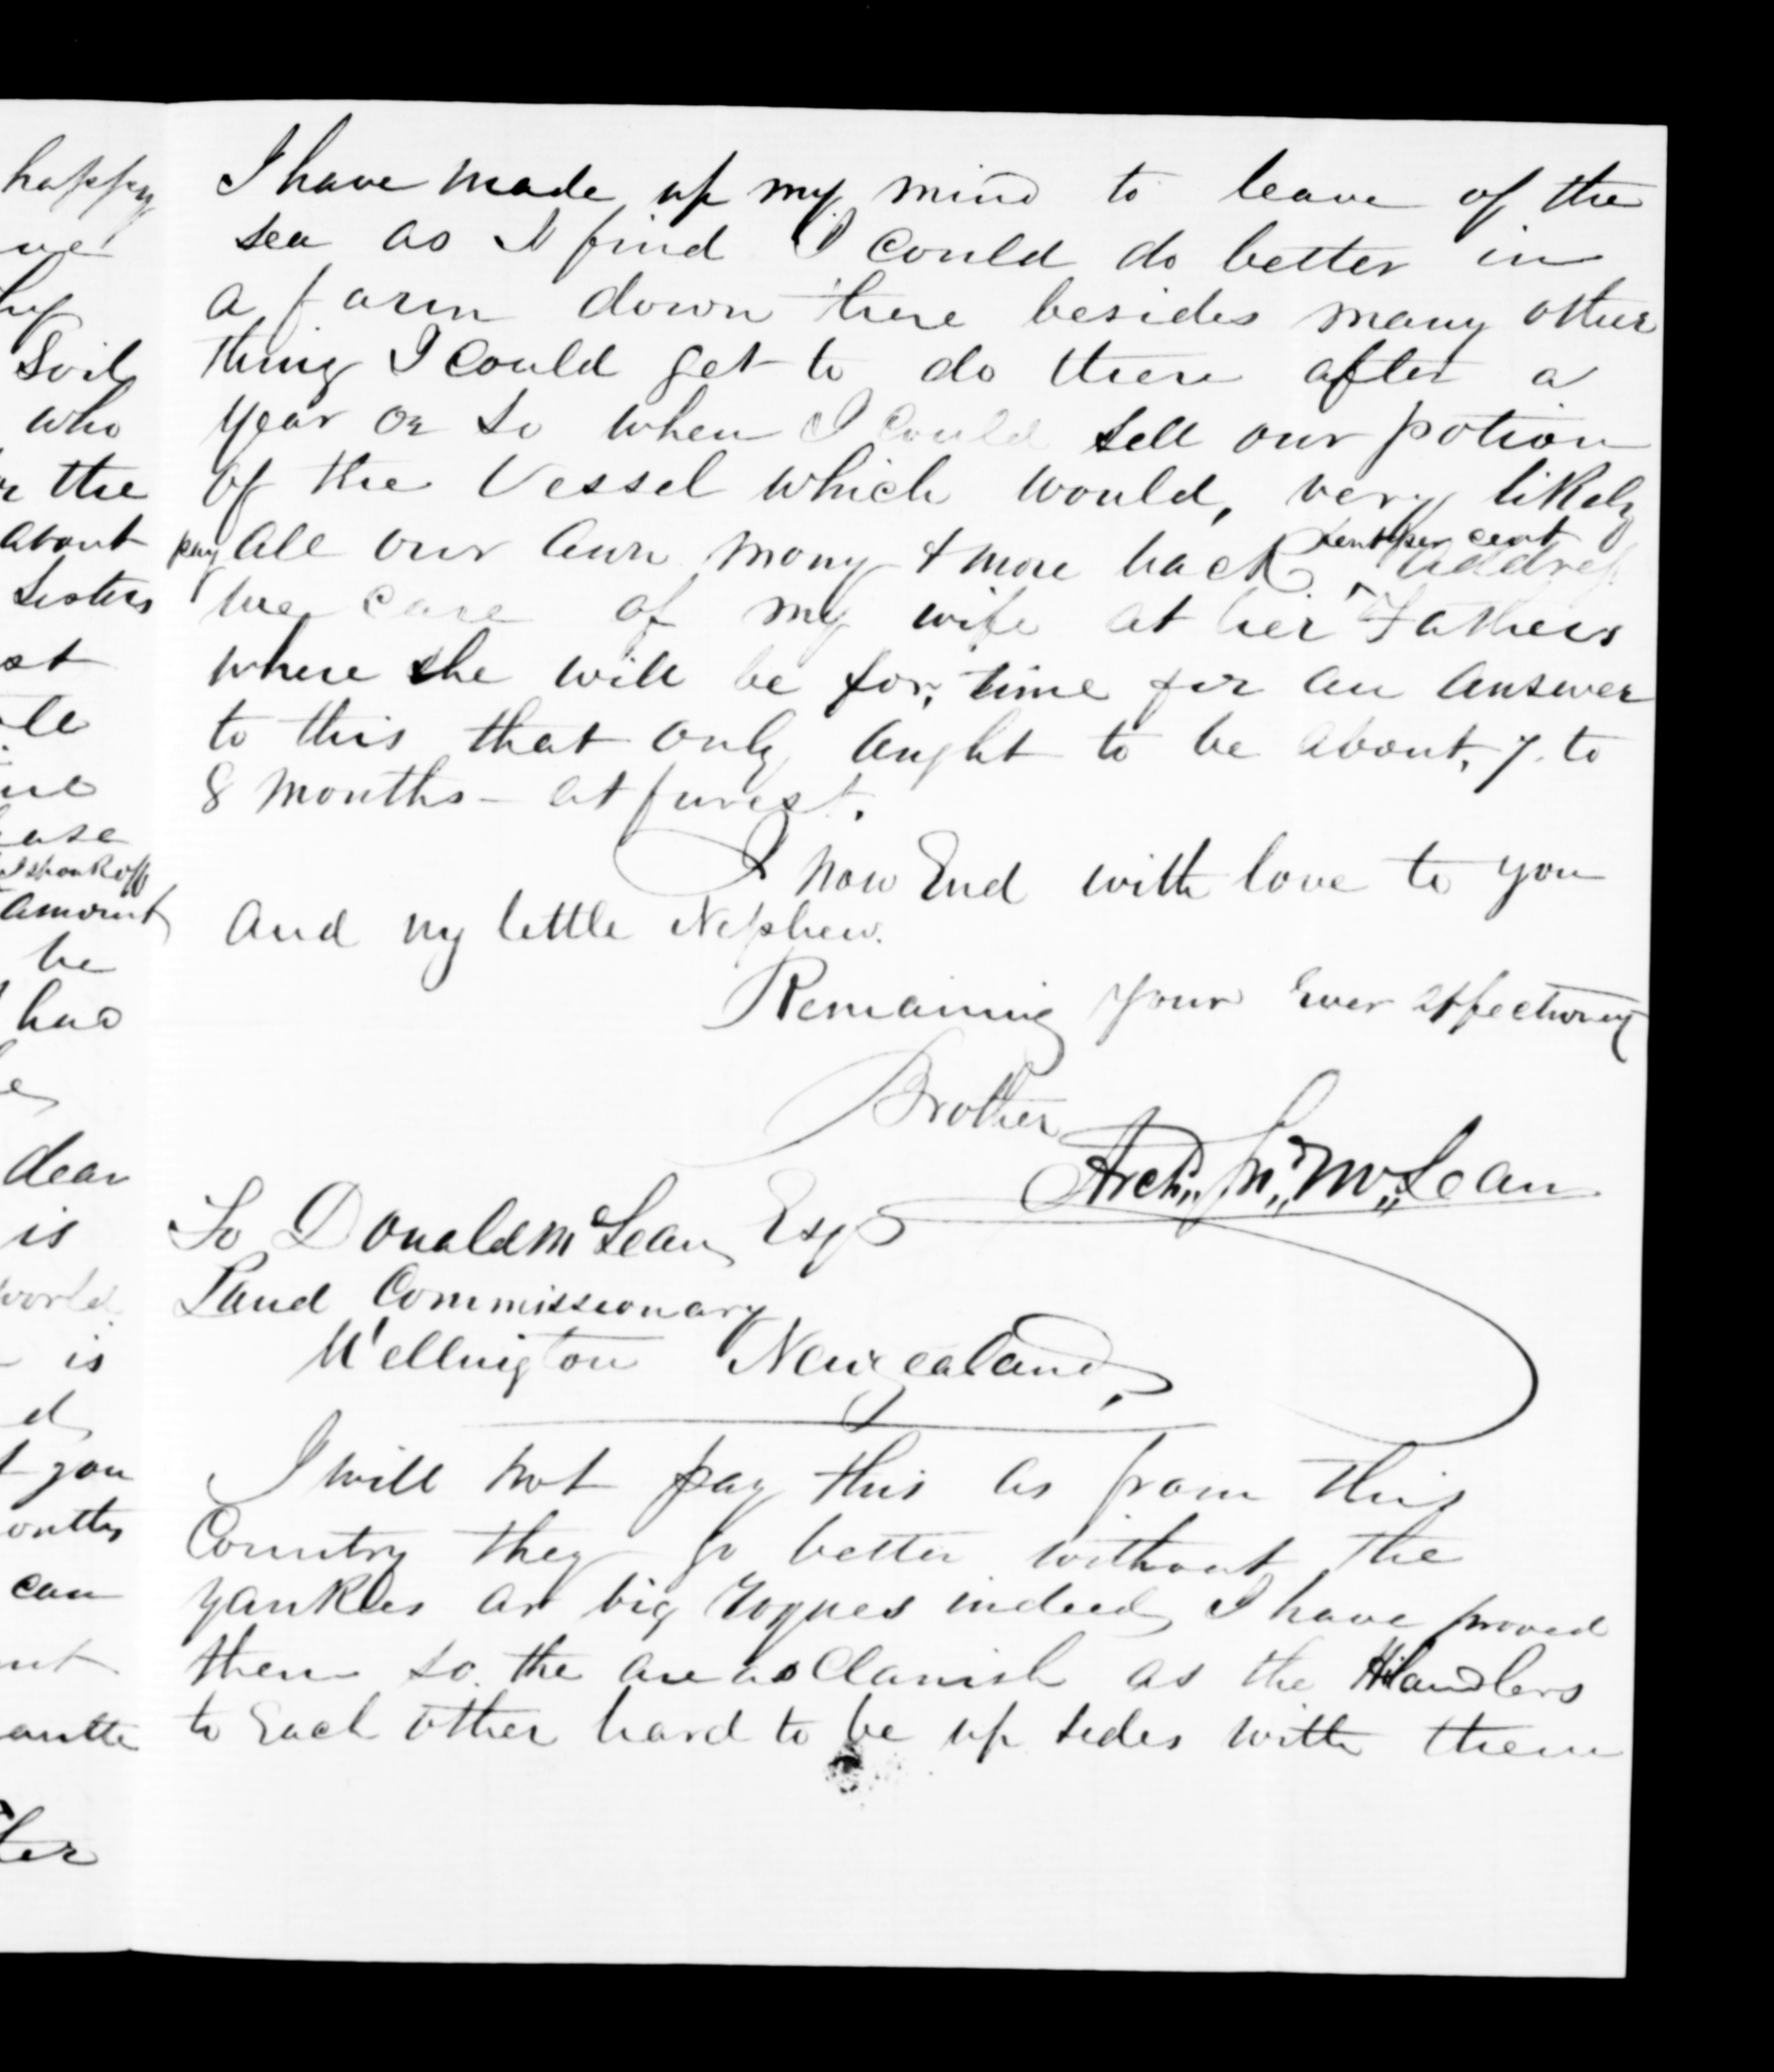 happy
ve
hy
Soil
who
the
about
Sisters
st
le
ease
I shook off
amount
be
had
dear
is
world
is
d
you
onths
can
ter
I have made up my mind to leave of the
sea as I find I could do better in
a farm down there besides many other
thing I could get to do there after a
year or so when I could sell our potion
of the Vessel which would, very likely
pay all our awn mony & more back tent per cent address
me care of my wife at her Fathers
where she will be for, time for an answer
to this that only aught to be about, 7. to
8 months - at furest.
I now End with love to you
And my little Nephew.
Remaining your Ever affectionay
Brother
Archd. Jn. Mc Lean
To Donald Mc Lean Esqr
Land Commissionary
Wellington Newzealand,
I will not pay this as from this
Country they go better without the
yankees ar big rogues indeed I have proved
them so. the are as Clanish as the Hilandlers
to Each other hard to be up sides with them